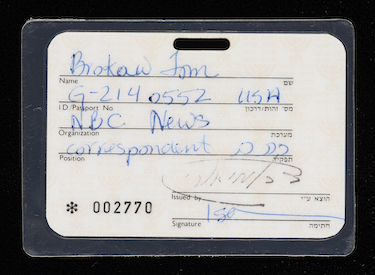 Brokaw Tom
Name שם
G-2140552 USA
I.D/Passport No. מס׳ זהות/דרכון
NBC News
Organization מערכת
correspondent כתב
Position תפקיד
Issued by הוצא ע״י
* 002770
Signature חתימה